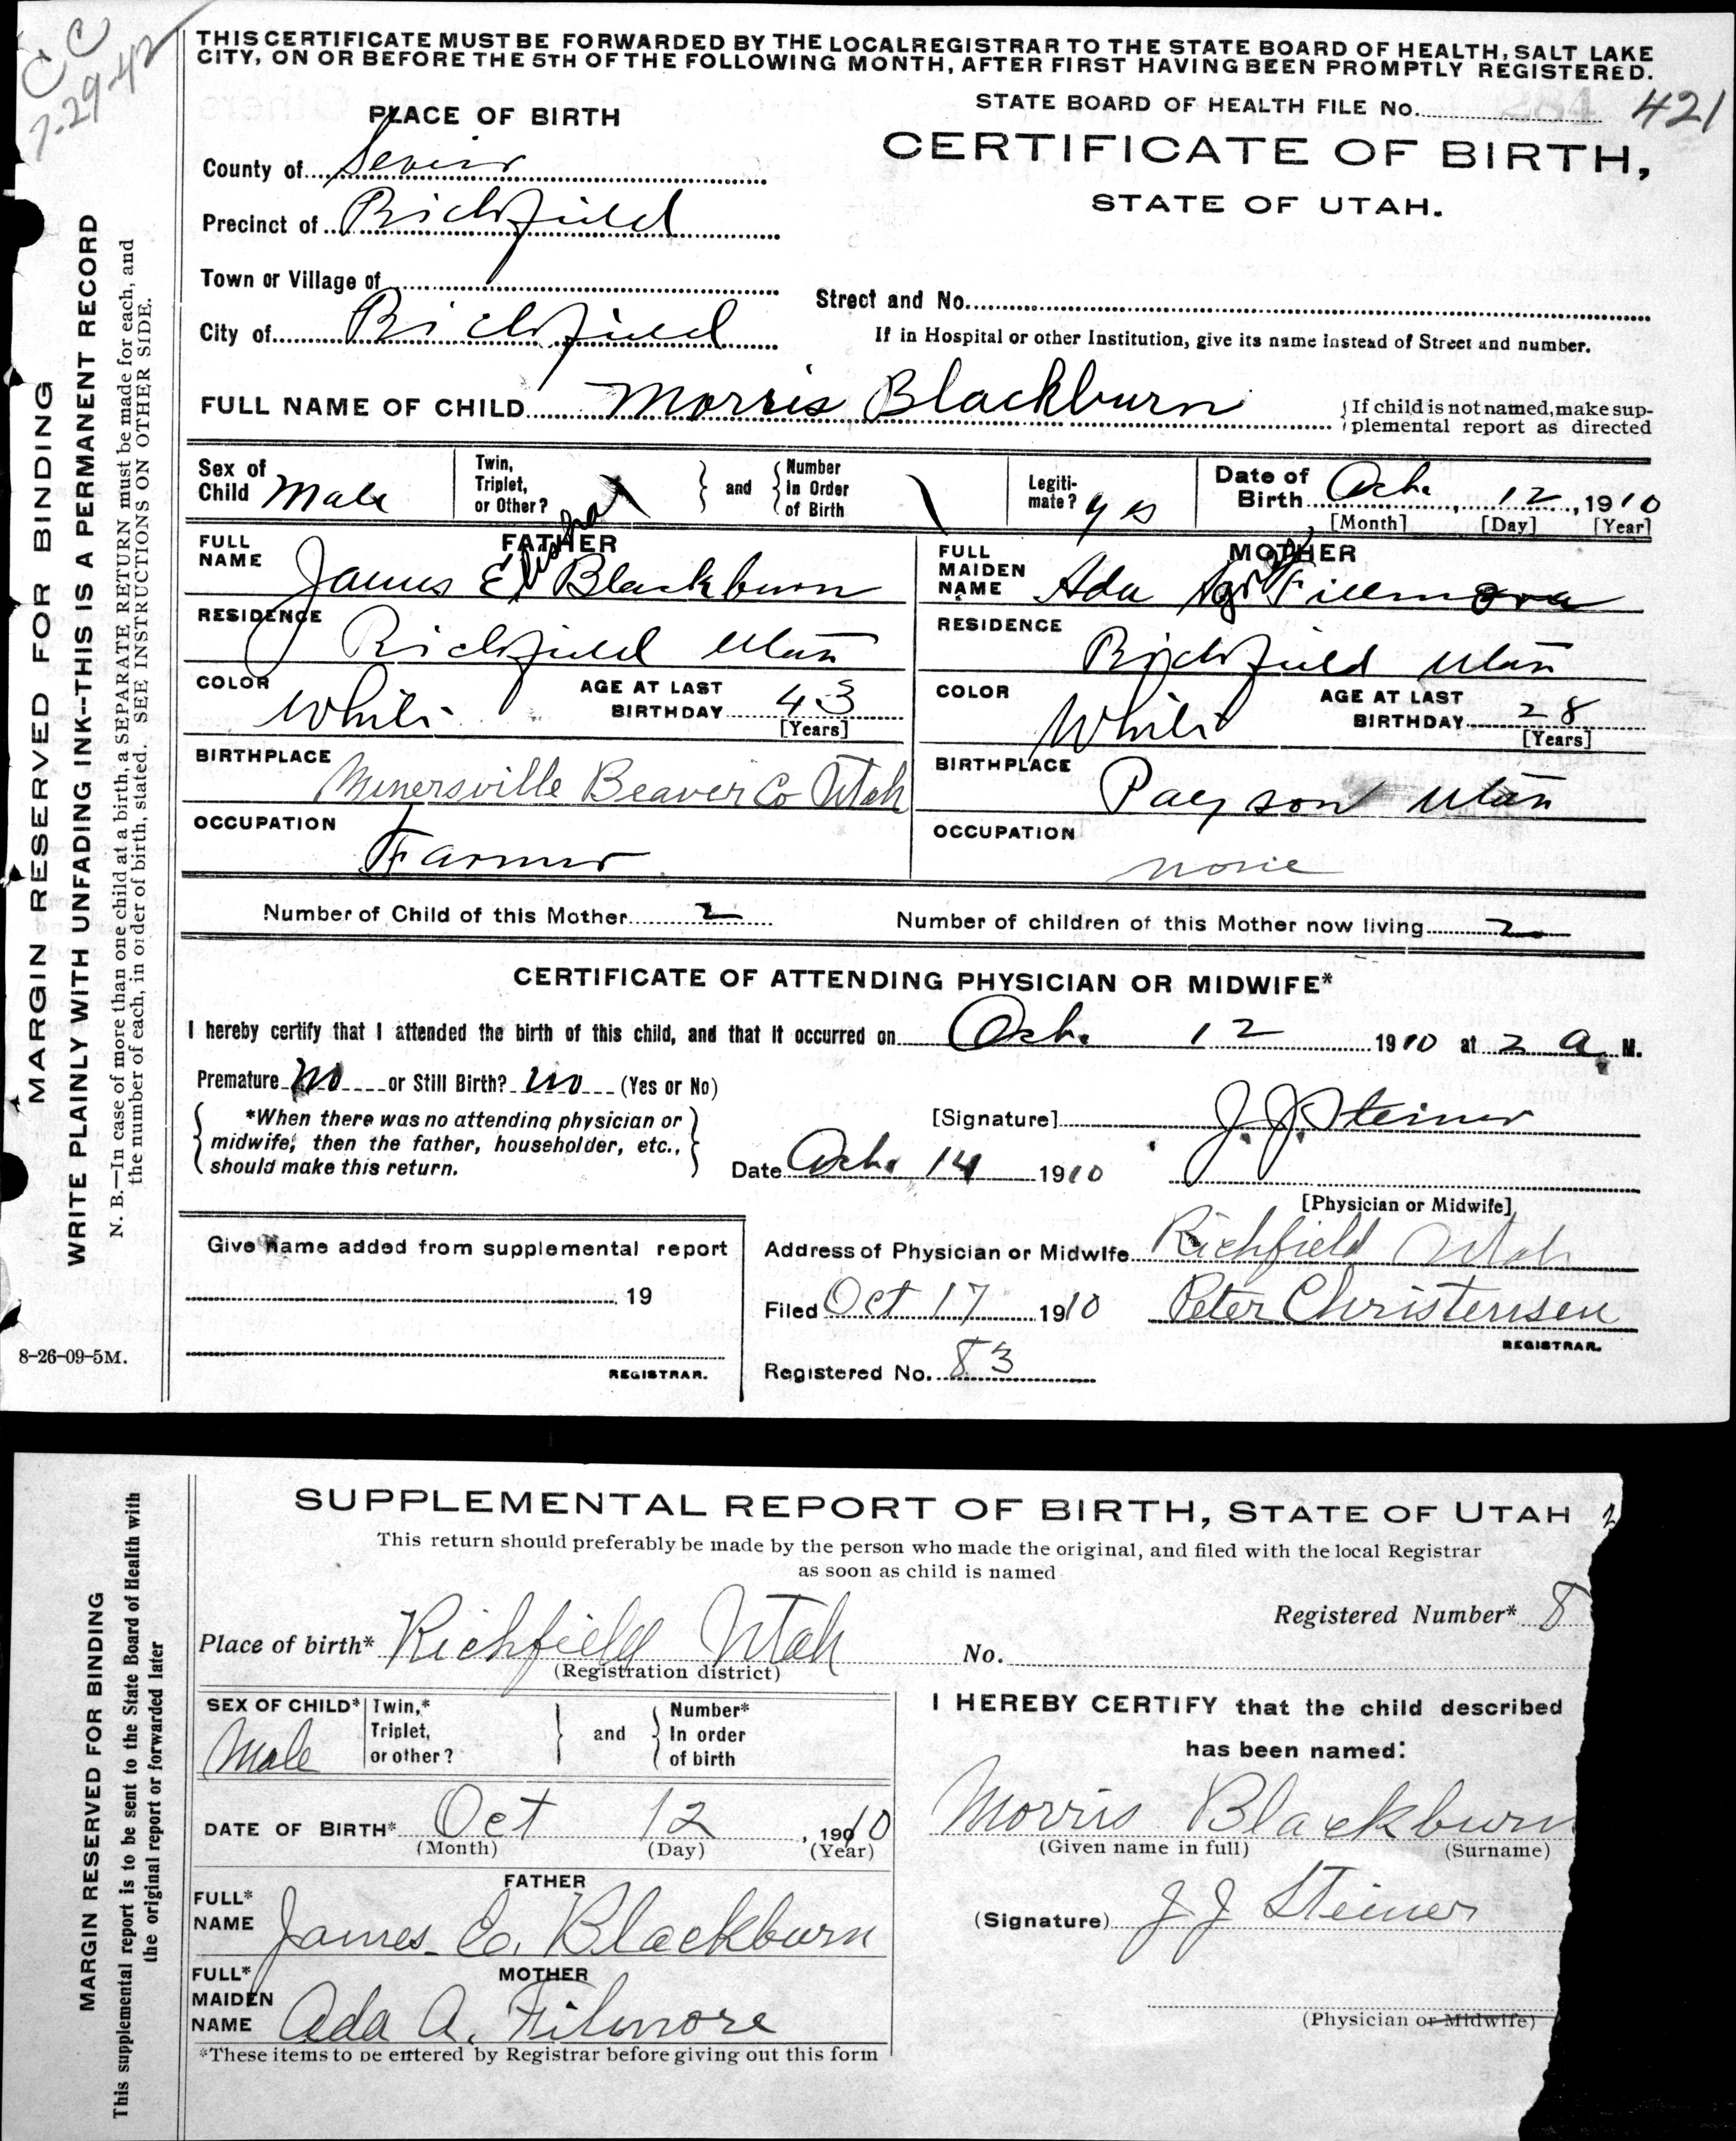 CC
7-29-42
THIS CERTIFICATE MUST BE FORWARDED BY THE LOCAL REGISTRAR TO THE STATE BOARD OF HEALTH, SALT LAKE
CITY, ON OR BEFORE THE 5TH OF THE FOLLOWING MONTH, AFTER FIRST HAVING BEEN PROMPTLY REGISTERED.
STATE BOARD OF HEALTH FILE No. 284 421
PLACE OF BIRTH
CERTIFICATE OF BIRTH,
STATE OF UTAH.
County of Sevier
Precinct of Richfield
Town or Village of
Street and No.
City of Richfield
If in Hospital or other Institution, give its name instead of Street and number.
FULL NAME OF CHILD Morris Blackburn
If child is not named, make sup-
plemental report as directed
Sex of Child Male
Twin, Triplet, or Other?
and
Number In Order of Birth
Legiti-mate? yes
Date of Birth Oct. 12, 1910
[Month] [Day] [Year]
FATHER
FULL NAME James Elisha Blackburn
MOTHER
FULL MAIDEN NAME Ada Fillmore
RESIDENCE Richfield Utah
RESIDENCE Richfield Utah
COLOR White
AGE AT LAST BIRTHDAY 43
[Years]
COLOR White
AGE AT LAST BIRTHDAY 28
[Years]
BIRTHPLACE Minersville Beaver Co Utah
BIRTHPLACE Payson Utah
OCCUPATION Farmer
OCCUPATION none
Number of Child of this Mother 2
Number of children of this Mother now living 2
CERTIFICATE OF ATTENDING PHYSICIAN OR MIDWIFE*
I hereby certify that I attended the birth of this child, and that it occurred on Oct. 12 1910 at 2 a M.
Premature no or Still Birth? no (Yes or No)
*When there was no attending physician or
midwife, then the father, householder, etc.,
should make this return.
[Signature] J. J. Steiner
Date Oct. 14 1910
[Physician or Midwife]
Give name added from supplemental report
19
REGISTRAR.
Address of Physician or Midwife Richfield Utah
Filed Oct 17 1910 Peter Christensen
REGISTRAR.
Registered No. 83
MARGIN RESERVED FOR BINDING
WRITE PLAINLY WITH UNFADING INK--THIS IS A PERMANENT RECORD
N. B.—In case of more than one child at a birth, a SEPARATE RETURN must be made for each, and
the number of each, in order of birth, stated. SEE INSTRUCTIONS ON OTHER SIDE.
8-26-09-5M.
SUPPLEMENTAL REPORT OF BIRTH, STATE OF UTAH
This return should preferably be made by the person who made the original, and filed with the local Registrar
as soon as child is named
Registered Number* 8
Place of birth* Richfield Utah No.
(Registration district)
SEX OF CHILD* Male
Twin,* Triplet, or other?
and
Number* In order of birth
DATE OF BIRTH* Oct 12, 1910
(Month) (Day) (Year)
FATHER
FULL* NAME James E. Blackburn
MOTHER
FULL* MAIDEN NAME Ada A. Filmore
*These items to be entered by Registrar before giving out this form
I HEREBY CERTIFY that the child described
has been named:
Morris Blackburn
(Given name in full) (Surname)
(Signature) J J Steiner
(Physician or Midwife)
MARGIN RESERVED FOR BINDING
This supplemental report is to be sent to the State Board of Health with
the original report or forwarded later